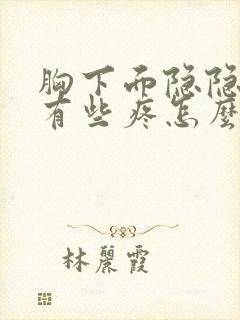 胸下面隐隐
有些疼怎麼
林麗霞